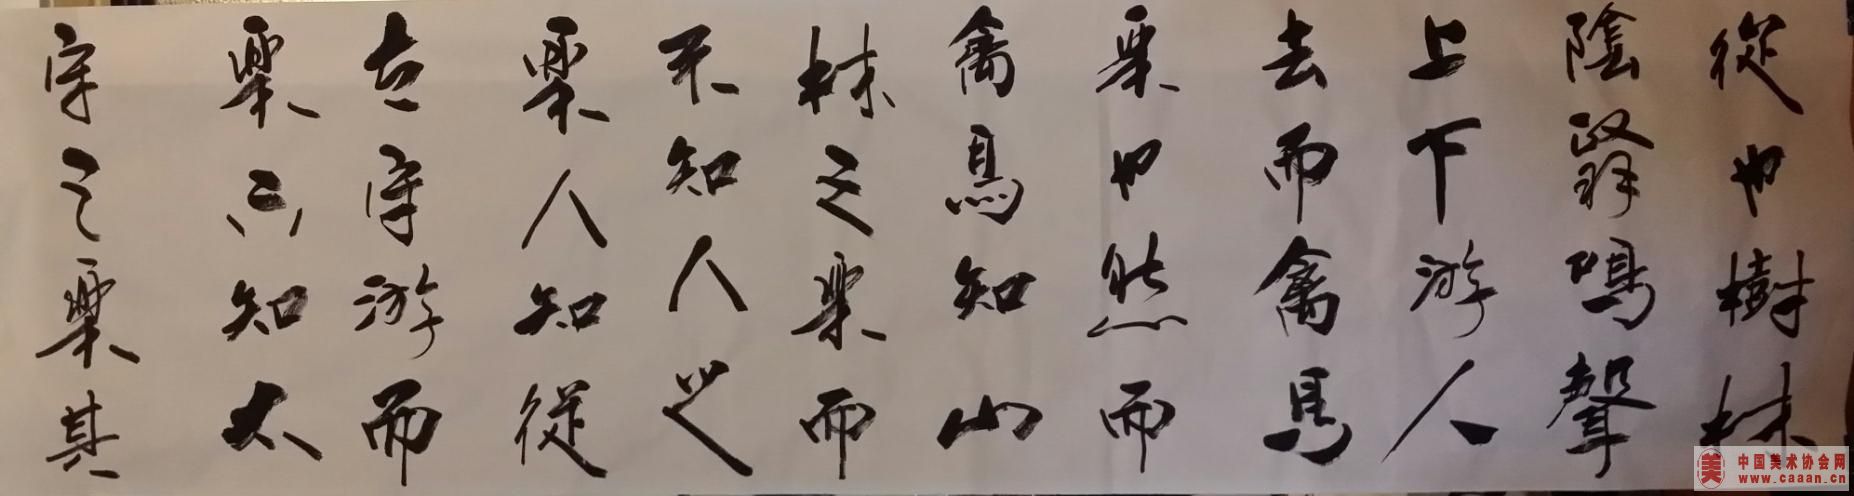 從也樹林
陰翳鳴聲
上下游人
去而禽鳥
樂也然而
禽鳥知山
林之樂而
不知人之
樂人知從
太守游而
樂不知太
守之樂其
美 中国美术协会网
www.caaan.cn